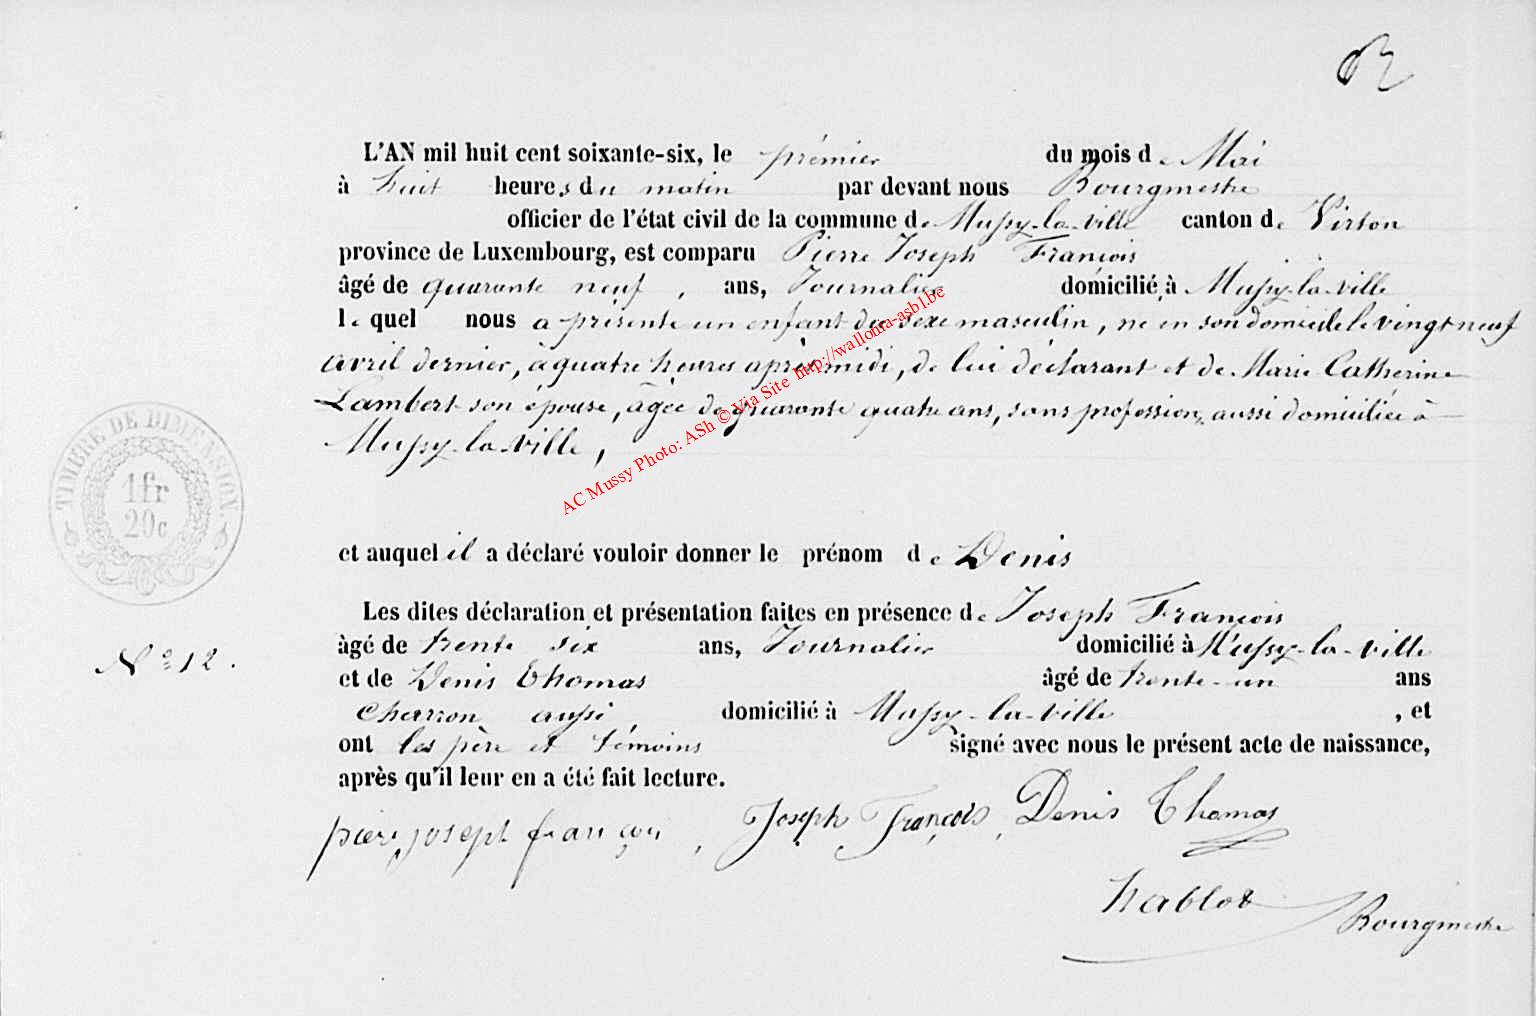 L'AN mil huit cent soixante-six, le prémier du mois de Mai
à huit heures du matin par devant nous Bourgmestre
officier de l'état civil de la commune de Mussy-la-ville canton de Virton
province de Luxembourg, est comparu Pierre Joseph François
âgé de quarante neuf, ans, Journalier domicilié à Mussy-la-ville
lequel nous a présenté un enfant du sexe masculin, né en son domicile le vingt neuf
avril dernier, à quatre heures après midi, de lui déclarant et de Marie Catherine
Lambert son épouse, âgée de quarante quatre ans, sans profession, aussi domiciliée à
Mussy-la-ville,
TIMBRE DE DIMENSION
1fr
20c
et auquel il a déclaré vouloir donner le prénom de Denis
Les dites déclaration et présentation faites en présence de Joseph François
âgé de trente six ans, Journalier domicilié à Mussy-la-ville
N° 12.
et de Denis Thomas âgé de trente-un ans
charron aussi domicilié à Mussy-la-ville, et
ont les père et témoins signé avec nous le présent acte de naissance,
après qu'il leur en a été fait lecture.
pierre joseph françois, Joseph François, Denis Thomas
hablot Bourgmestre
AC Mussy Photo: ASh © Via Site http://wallonia-asbl.be